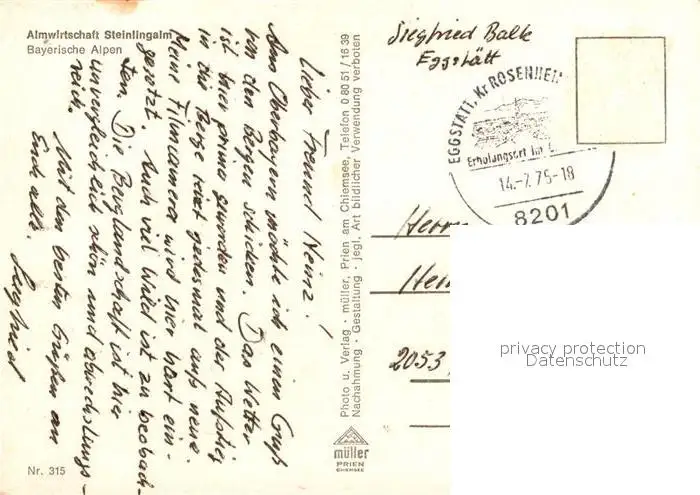 Almwirtschaft Steinlingalm
Bayerische Alpen
Lieber Freund Heinz!
Aus Oberbayern möchte ich einen Gruß
von den Bergen schicken. Das Wetter
ist hier prima geworden und der Aufstieg
in die Berge reizt jedesmal aufs neue.
Meine Filmkamera wird hier hart ein-
gesetzt. Auch viel Wild ist zu beobach-
ten. Die Berglandschaft ist hier
unvergleichlich schön und abwechslungs-
reich.
Mit den besten Grüßen an
Euch alle.
Siegfried
Nr. 315
Photo u. Verlag · müller, Prien am Chiemsee, Telefon 0 80 51 / 16 39
Nachahmung · Gestaltung · jegl. Art bildlicher Verwendung verboten
müller
PRIEN
CHIEMSEE
Siegfried Balk
Eggstätt
EGGSTÄTT, Kr ROSENHEIM
Erholungsort im
14.-7.75-18
8201
Herrn
Hei
2053
privacy protection
Datenschutz